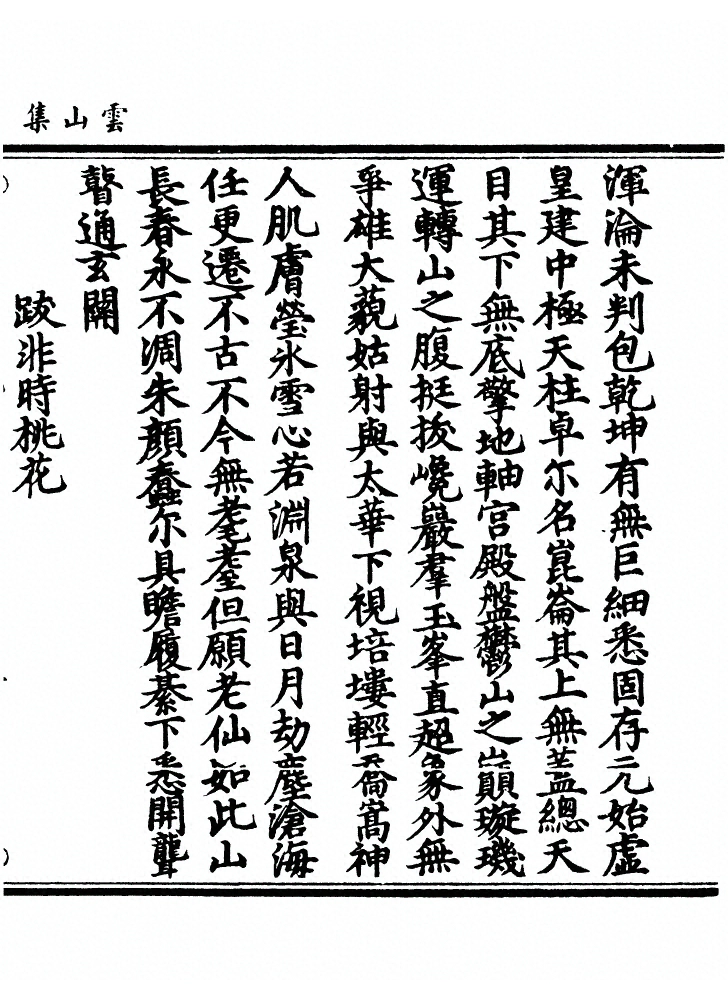 雲山集
渾淪未判包乾坤有無巨細悉固存元始虛
皇建中極天柱卓尔名崑崙其上無盖總天
目其下無底擎地軸宮殿盤鬱山之巔璇璣
運轉山之腹挺拔巉巖羣玉峯直超象外無
爭雄大藐姑射與太華下視培塿輕喬嵩神
人肌膚瑩氷雪心若淵泉與日月劫塵滄海
任更遷不古不今無耄耋但願老仙如此山
長春永不凋朱顏蠢尔具瞻履綦下悉開聾
瞽通玄關
跋非時桃花